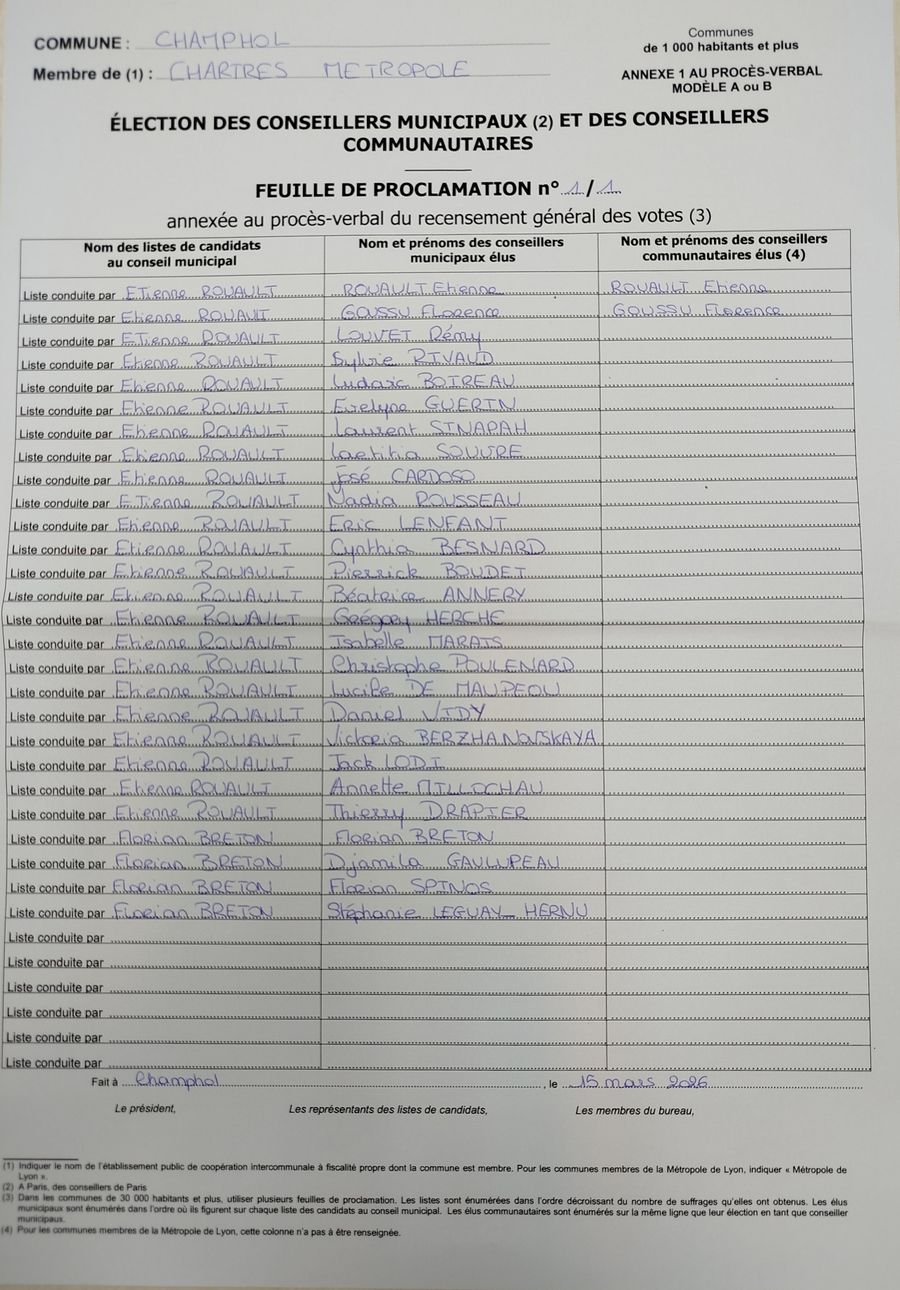 COMMUNE : CHAMPHOL
Membre de (1) : CHARTRES METROPOLE
Communes
de 1 000 habitants et plus
ANNEXE 1 AU PROCÈS-VERBAL
MODÈLE A ou B
ÉLECTION DES CONSEILLERS MUNICIPAUX (2) ET DES CONSEILLERS
COMMUNAUTAIRES
FEUILLE DE PROCLAMATION n° 1/1
annexée au procès-verbal du recensement général des votes (3)
Nom des listes de candidats au conseil municipal | Nom et prénoms des conseillers municipaux élus | Nom et prénoms des conseillers communautaires élus (4)
Liste conduite par Etienne ROUAULT | ROUAULT Etienne | ROUAULT Etienne
Liste conduite par Etienne ROUAULT | GOUSSU Florence | GOUSSU Florence
Liste conduite par Etienne ROUAULT | LOUVET Rémy
Liste conduite par Etienne ROUAULT | Sylvie RIVAUD
Liste conduite par Etienne ROUAULT | Ludovic BOIREAU
Liste conduite par Etienne ROUAULT | Evelyne GUERIN
Liste conduite par Etienne ROUAULT | Laurent SINAPAH
Liste conduite par Etienne ROUAULT | Laetitia SOUVRE
Liste conduite par Etienne ROUAULT | José CARDOSO
Liste conduite par Etienne ROUAULT | Nadia ROUSSEAU
Liste conduite par Etienne ROUAULT | Eric LENFANT
Liste conduite par Etienne ROUAULT | Cynthia BESNARD
Liste conduite par Etienne ROUAULT | Pierrick BOUDET
Liste conduite par Etienne ROUAULT | Béatrice ANNERY
Liste conduite par Etienne ROUAULT | Grégory HERCHE
Liste conduite par Etienne ROUAULT | Isabelle MARAIS
Liste conduite par Etienne ROUAULT | Christophe POULENARD
Liste conduite par Etienne ROUAULT | Lucile DE MAUPEOU
Liste conduite par Etienne ROUAULT | Daniel VIDY
Liste conduite par Etienne ROUAULT | Victoria BERZHANOVSKAYA
Liste conduite par Etienne ROUAULT | Jack LODI
Liste conduite par Etienne ROUAULT | Annette MILLOCHAU
Liste conduite par Etienne ROUAULT | Thierry DRAPIER
Liste conduite par Florian BRETON | Florian BRETON
Liste conduite par Florian BRETON | Djamila GAULUPEAU
Liste conduite par Florian BRETON | Florian SPINOS
Liste conduite par Florian BRETON | Stéphanie LEGUAY HERNU
Liste conduite par
Liste conduite par
Liste conduite par
Liste conduite par
Liste conduite par
Liste conduite par
Fait à Champhol, le 15 mars 2026
Le président, Les représentants des listes de candidats, Les membres du bureau,
(1) Indiquer le nom de l'établissement public de coopération intercommunale à fiscalité propre dont la commune est membre. Pour les communes membres de la Métropole de Lyon, indiquer « Métropole de
Lyon ».
(2) A Paris, des conseillers de Paris
(3) Dans les communes de 30 000 habitants et plus, utiliser plusieurs feuilles de proclamation. Les listes sont énumérées dans l'ordre décroissant du nombre de suffrages qu'elles ont obtenus. Les élus
municipaux sont énumérés dans l'ordre où ils figurent sur chaque liste des candidats au conseil municipal. Les élus communautaires sont énumérés sur la même ligne que leur élection en tant que conseiller
municipaux.
(4) Pour les communes membres de la Métropole de Lyon, cette colonne n'a pas à être renseignée.